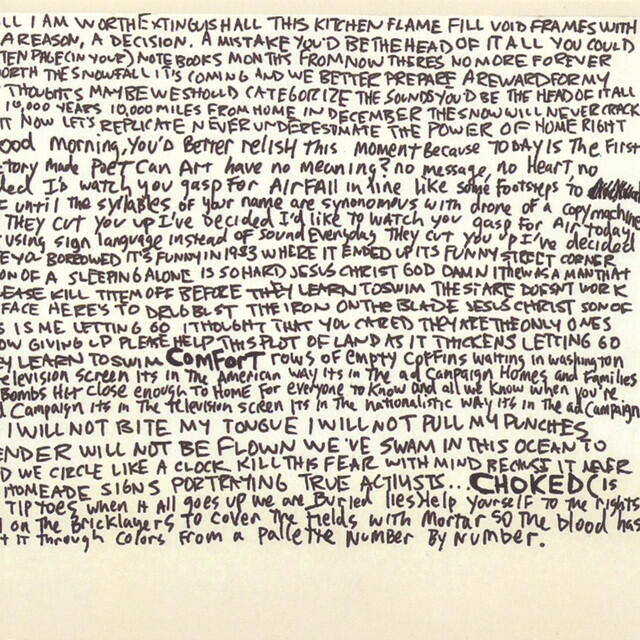 ALL I AM WORTH EXTINGUISH ALL THIS KITCHEN FLAME FILL VOID FRAMES WITH
A REASON, A DECISION. A MISTAKE YOU'D BE THE HEAD OF IT ALL YOU COULD
TEN PAGE (IN YOUR) NOTEBOOKS MONTHS FROM NOW THERES NO MORE FOREVER
WORTH THE SNOWFALL IT'S COMING AND WE BETTER PREPARE A REWARD FOR MY
THOUGHTS MAYBE WE SHOULD CATEGORIZE THE SOUNDS YOU'D BE THE HEAD OF IT ALL
10,000 YEARS 10,000 MILES FROM HOME IN DECEMBER THE SNOW WILL NEVER CRACK
IT NOW LET'S REPLICATE NEVER UNDERESTIMATE THE POWER OF HOME RIGHT
Good Morning, You'D Better relish this Moment Because TODAY IS The First
ctory Made Poet Can Art have no meaning? no message, no Heart, no
ded I'd watch you gasp For Air Fall in line like same Footsteps To
F until the syllables of your name are synonomous with drone of a copy machine
THEY CUT YOU UP I'VE DECIDED I'd LIKE TO WATCH you gasp for Air today
using sign language instead of sound Everyday They CUT YOU UP I've decided
E YOU BORROWED IT'S FUNNY IN 1983 WHERE IT ENDED UP ITS FUNNY STREET CORNER
ON OF A SLEEPING ALONE IS SO HARD JESUS CHRIST GOD DAMN IT HEW AS A MAN THAT
LEASE KILL ITEM OFF BEFORE THEY LEARN TO SWIM THESE ARE DOESNT WORK
FACE HERE'S TO DRUG BUST THE IRON ON THE BLADE JESUS CHRIST SON OF
S IS ME LETTING GO I THOUGHT THAT YOU CARED THEY ARE THE ONLY ONES
OW GIVING UP PLEASE HELP THIS PLOT OF LAND AS IT THICKENS LETTING GO
EY LEARN TO SWIM COMFORT rows of empty coffins waiting in washington
elevision screen Its in The American way Its in The ad Campaign Homes and Families
Bombs Hit close enough to Home For everyone to Know and all we Know when you're
d Campaign its in The Television screen Its in The nationalistic way its in The ad Campaign
I WILL NOT BITE MY TONGUE I WILL NOT PULL MY PUNCHES
ENDER WILL NOT BE FLOWN WE'VE SWAM IN THIS OCEAN TO
D WE CIRCLE LIKE A CLOCK KILL THIS FEAR WITH MIND BECAUSE IT NEVER
HOMEADE SIGNS PORTRAYING TRUE ACTIVISTS... CHOKED (IS
TIPTOES when it All goes up we are Buried lies Help Yourself To The rights
l on The Bricklayers To Cover The Fields with Mortar SO The blood has
t it Through Colors From a Pallette Number By Number.